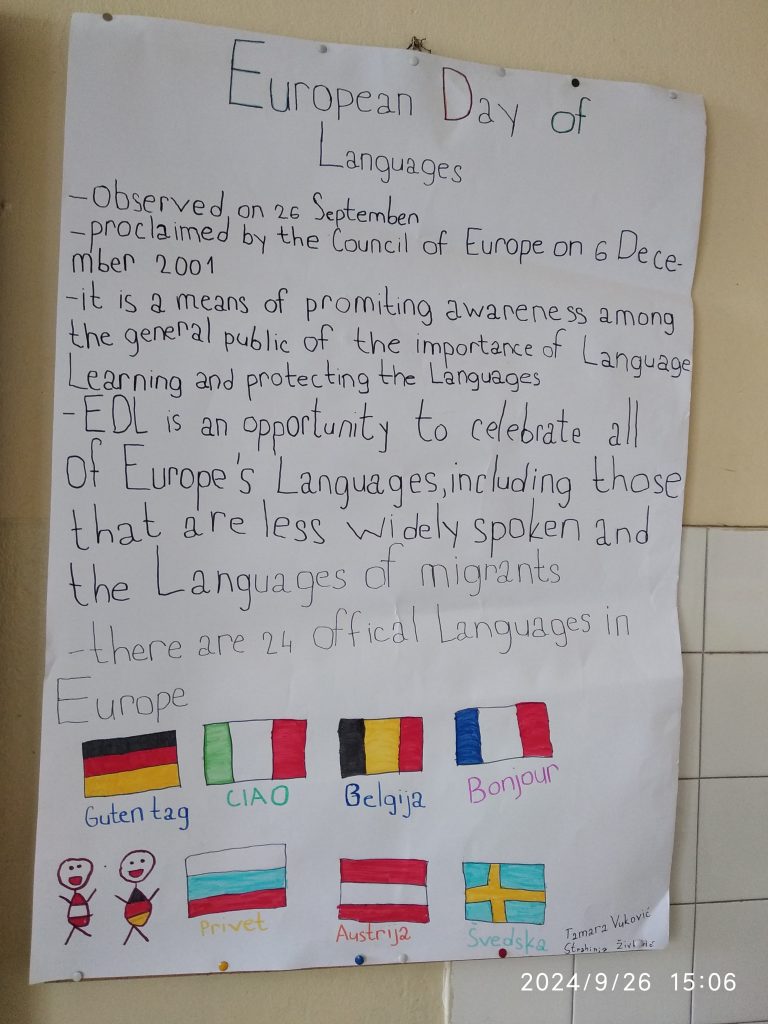 European Day of
Languages
-Observed on 26 Septemben
-proclaimed by the Council of Europe on 6 Dece-
mber 2001
-it is a means of promiting awareness among
the general public of the importance of Language
Learning and protecting the Languages
-EDL is an opportunity to celebrate all
Of Europe's Languages, including those
that are less widely spoken and
the Languages of migrants
-there are 24 Offical Languages in
Europe
Guten tag
CIAO
Belgija
Bonjour
Privet
Austrija
Švedska
Tamara Vuković
2024/9/26 15:06